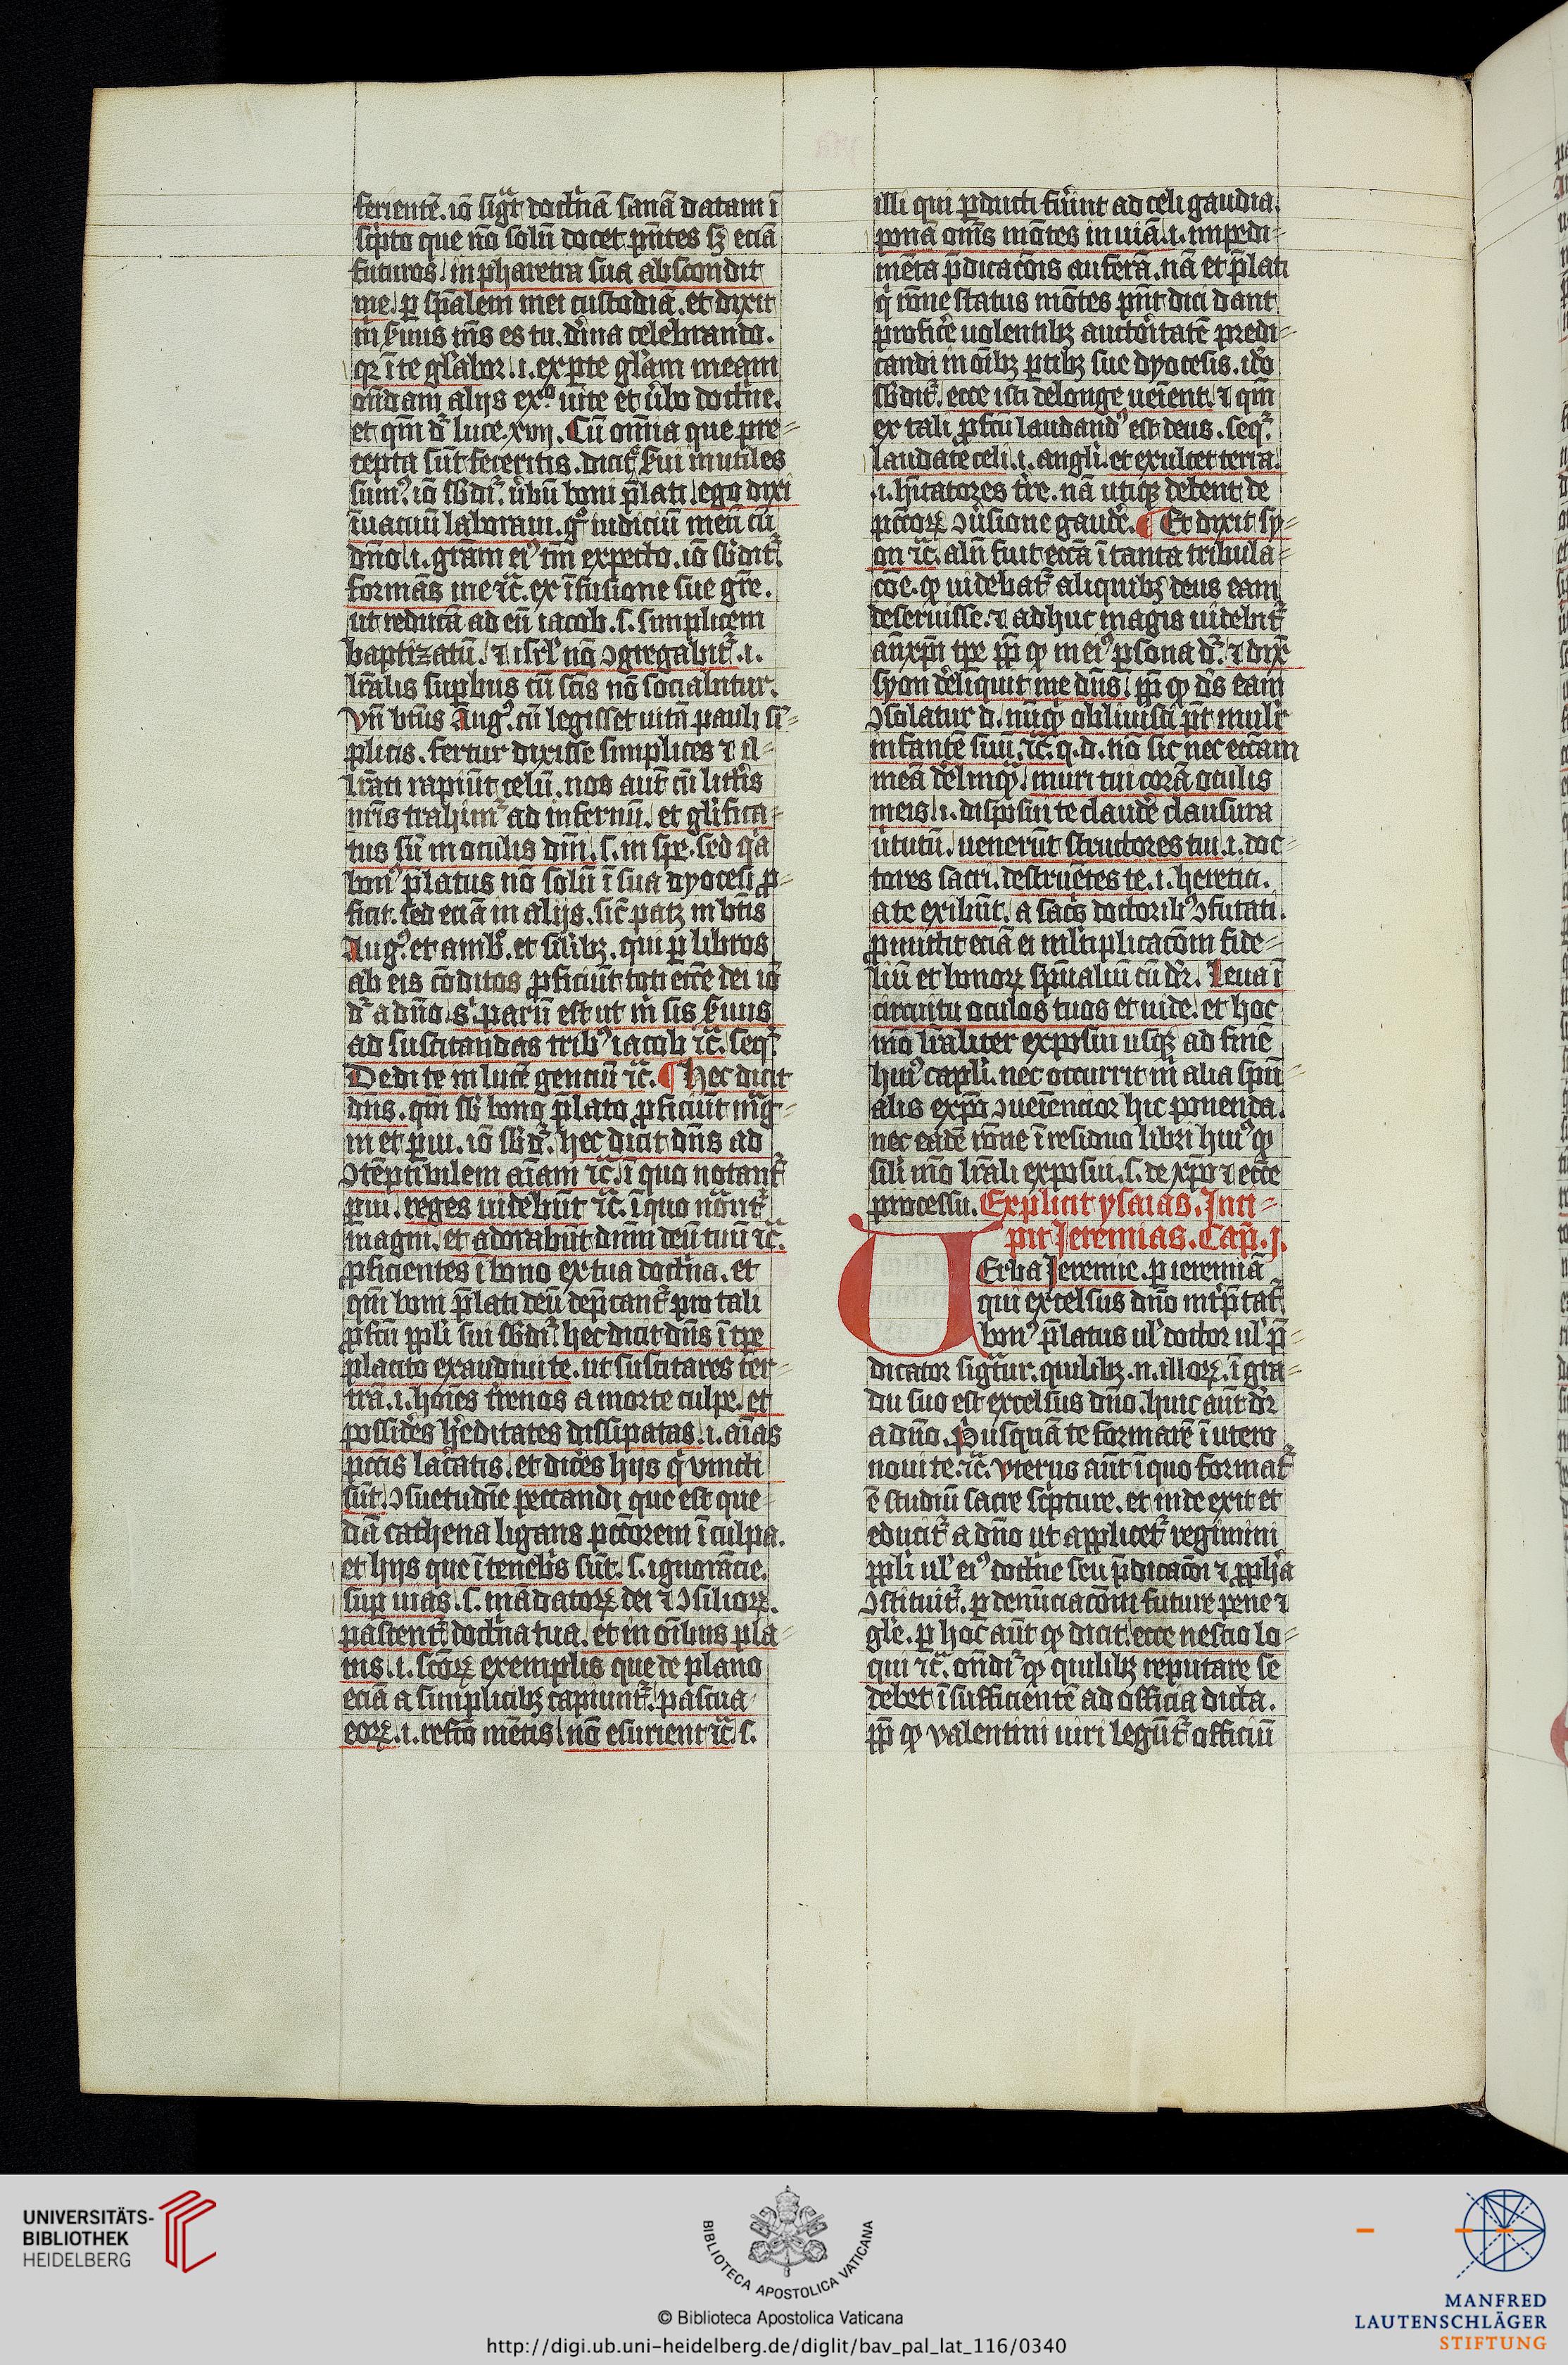 ferientē. iō sigᷓt doctͥnā sanā datam ī
scͥpto que nō solū docet pn̄tes sꝫ eciā
futuros in pharetra sua abscondit
me. ꝑ spāalem mei custodiā. et dixit
m̄ ẜuus m̄s es tu. dͥuina celebrando.
qꝛ īte gl̄abor .i. ex ꝑte gl̄am meam
on̄dam alijs exº uite et ūbo doctͥne.
et qm̄ dr̄ luce. xvij. Cū omnia que pre-
cepta sūt feceritis. dicitᷣ ẜui inutiles
sumꝰ. iō sb̄ditᷣ. ūbū boni p̄lati ego dixi
īuacuū laboraui. gͦ iudiciū meū cū
dn̄o .i. grām eiꝰ tm̄ expecto. iō sb̄ditᷣ.
formās me ⁊c̄. ex īfusione sue gr̄e.
ut reducā ad eū iacob .s. simplicem
baptizatū. ⁊ isrl̄ nō ꝯgregabitᷣ .i.
lr̄alis suꝑbus cū sc̄is nō sociabitur.
Vn̄ bt̄us Augꝰ. cū legisset uitā pauli si-
plicis. fertur dixisse simplices ⁊ il-
lr̄ati rapiūt celū. nos aut̄ cū litt̄is
nr̄is trahimᷣ ad infernū. et gl̄ifica-
tus sū in oculis dn̄i .s. in spe. sed qͥa
boni p̄latus nō solū ī sua dyocesi ꝓ-
ficit. sed eciā in alijs. sic̄ patꝫ in bt̄is
Augꝰ. et amb̄. et sil̄ibꝫ. qui ꝑ libros
ab eis cōditos ꝓficiūt toti ecc̄e dei iō
dr̄ a dn̄o. s. parū est ut m̄ sis ẜuus
ad suscitandas tribꝰ iacob ⁊c̄. seqᷣ.
Dedi te in lucē genciū ⁊c̄. ¶ Hec dicit
dn̄s. qm̄ sb̄ bono p̄lato ꝓficiūt mᷓg-
ni et ꝑui. iō sb̄dr̄. hec dicit dn̄s ad
ꝯtēptibilem aīam ⁊c̄. ī quo notantᷣ
ꝑui. reges uidebūt ⁊c̄. ī quo notantᷣ
magni. et adorabūt dn̄m deū tuū ⁊c̄.
ꝓficientes ī bono ex tua doctͥna. et
qm̄ boni p̄lati deū dep̄cantᷣ pro tali
ꝓfc̄u ppl̄i sui sb̄ditᷣ. hec dicit dn̄s ī tpe
placito exaudiui te. ut suscitares ter-
rā .i. hoīes tr̄enos a morte culpe. et
possid̄es h̄editates dissipatas .i. aīas
pcc̄is lac̄atis. et dic̄es hijs qͥ vincti
sūt. ꝯsuetudīe peccandi que est que-
dā cathena ligans pcc̄orem ī culpa.
et hijs que ī teneb̄s sūt .s. ignorācie.
suꝑ uias .s. mādatoꝝ dei ⁊ ꝯsilioꝝ.
pascentᷣ. doctͥna tua. et in oībus pla-
nis .i. sc̄oꝝ exemplis que de plano
eciā a simplicibꝫ capiuntᷣ. pascua
eoꝝ .i. refc̄o mētis nō esurient ⁊c̄ .s.
illi qui ꝑducti fūint ad celi gaudia.
ponā om̄s mōtes in uiā .i. impedi-
mēta p̄dicacōis auferā. nā et p̄lati
qͥ rōne status mōtes pn̄t dici dant
profic̄e uolentibꝫ auctōritatē predi-
candi in oībꝫ ꝑtibꝫ sue dyocesis. id̄o
sb̄ditᷣ. ecce isti de longe ueīent. ⁊ qm̄
ex tali ꝓfc̄u laudandꝰ est deus. seqᷣ.
laudate celi .i. angl̄i. et exultet terra.
.i. hītatores tr̄e. nā utiqꝫ debent de
pcc̄oꝝ ꝯūsione gaud̄e. ¶ Et dixit sy-
on ⁊c̄. aln̄ fuit ecc̄a ī tanta tribula-
cōe. ꝙ uidebatᷣ aliquibꝫ deus eam
deseruisse. ⁊ adhuc magis uidebitᷣ
an̄xp̄i tpe ꝓp̄ ꝙ in eiꝰ ꝑsona dr̄. ⁊ dix̄
syon d̄eliquit me dn̄s. ꝓp̄ ꝙ d̄s eam
ꝯsolatur d. nūqͥ obliuisci pt̄ mulir̄
infantē suū. ⁊c̄. q. d. nō sic nec ecc̄am
meā d̄elinqͦ. muri tui corā oculis
meis .i. disposui te claud̄e clausura
ūtutū. uenerūt structores tui .i. doc-
tores sacri. destruētes te .i. heretici.
a te exibūt. a sacͥs doctoribꝰ ꝯfutati.
ꝓmittit eciā ei ml̄tiplicacōm fide-
liū et bonoꝝ spūaliū cū dr̄. Leua ī
circuitu oculos tuos et uide. et hoc
mō lr̄aliter exposui usqꝫ ad finē
huiꝰ capl̄i. nec occurrit m̄ alia spūi-
alis expō ꝯueīencior hic ponenda.
nec eadē rōne ī residuo libri huiꝰ ꝙ
sil̄i mō lr̄ali exposui .s. de xp̄o ⁊ ecc̄e
processu. Explicit ysaias. Inci-
pit Jeremias. Cap̄. j.
UErba Jeremie. ꝑ ieremiā
qui excelsus dn̄o int̄p̄tatᷣ
bonꝰ p̄latus ul̄ doctor ul̄ p̄-
dicator sigᷓtur. quilibꝫ .n. illoꝝ. ī gra-
du suo est excelsus dn̄o. huic aūt dr̄
a dn̄o. Pͥusquā te formarē ī utero
noui te. ⁊c̄. vterus aūt ī quo formatᷣ
ē studiū sacre scͥpture. et inde exit et
educitᷣ a dn̄o ut applicetᷣ regimini
ppl̄i ul̄ eiꝰ doctͥne seu p̄dicacōi ⁊ ꝓph̄a
ꝯstituitᷣ. ꝑ denūciacōm future pene ⁊
gl̄e. ꝑ hoc aūt ꝙ dicit. ecce nescio lo-
qui ⁊c̄. on̄ditᷣ ꝙ quilibꝫ reputare se
debet īsufficientē ad officia dicta.
ꝓp̄ ꝙ valentini uiri legūtᷣ officiū
UNIVERSITÄTS-
BIBLIOTHEK
HEIDELBERG
BIBLIOTECA APOSTOLICA VATICANA
© Biblioteca Apostolica Vaticana
http://digi.ub.uni-heidelberg.de/diglit/bav_pal_lat_116/0340
MANFRED
LAUTENSCHLÄGER
STIFTUNG